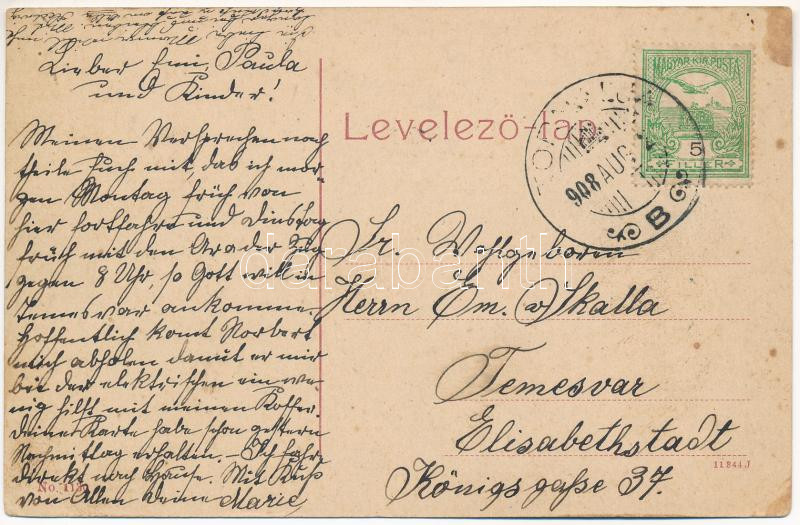 Lieber Emi, Paula
und Kinder!
Meinen Versprechen nach
theile Euch mit, das ich mor-
gen Montag früh von
hier fortfahre und Dinstag
früh mit den Arader Zug
gegen 8 Uhr, so Gott will in
Temesvar ankomme.
Hoffentlich komt Norbert
mich abholen damit er mir
bei der elektrischen ein we-
nig hilft mit meinen Koffer.
Deine Karte habe schon gestern
Nachmittag erhalten. - Ich fahr
direkt nach Hause. Mit Kuß
von Allen Deine Marie
No. 113
Levelező-lap
MAGYAR KIR. POSTA
5
FILLER
908 AUG
B
Sr. Wohlgeboren
Herrn Em. v Skalla
Temesvar
Elisabethstadt
Königsgaße 37.
11844J
darabanth